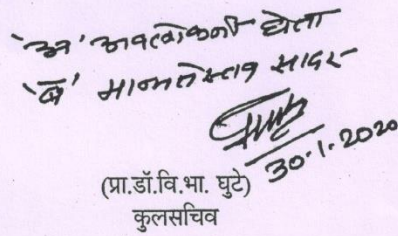 'अ' अवलोकनी घेता
'ब' मान्यतेस्तव सादर
30.1.2020
(प्रा.डॉ.वि.भा. घुटे)
कुलसचिव